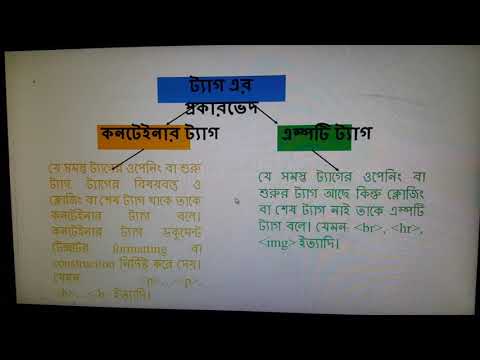 ট্যাগ এর
প্রকারভেদ
কনটেইনার ট্যাগ
এম্পটি ট্যাগ
যে সমস্ত ট্যাগের ওপেনিং বা শুরু
ট্যাগ, ট্যাগের বিষয়বস্তু ও
ক্লোজিং বা শেষ ট্যাগ থাকে তাকে
কনটেইনার ট্যাগ বলে।
কনটেইনার ট্যাগ ডকুমেন্ট
টেক্সটের formatting বা
construction নির্দিষ্ট করে দেয়।
যেমন <p>...<p>,
<b>...<b> ইত্যাদি।
যে সমস্ত ট্যাগের ওপেনিং বা
শুরুর ট্যাগ আছে কিন্তু ক্লোজিং
বা শেষ ট্যাগ নাই তাকে এম্পটি
ট্যাগ বলে। যেমন <br>, <hr>,
<img> ইত্যাদি।